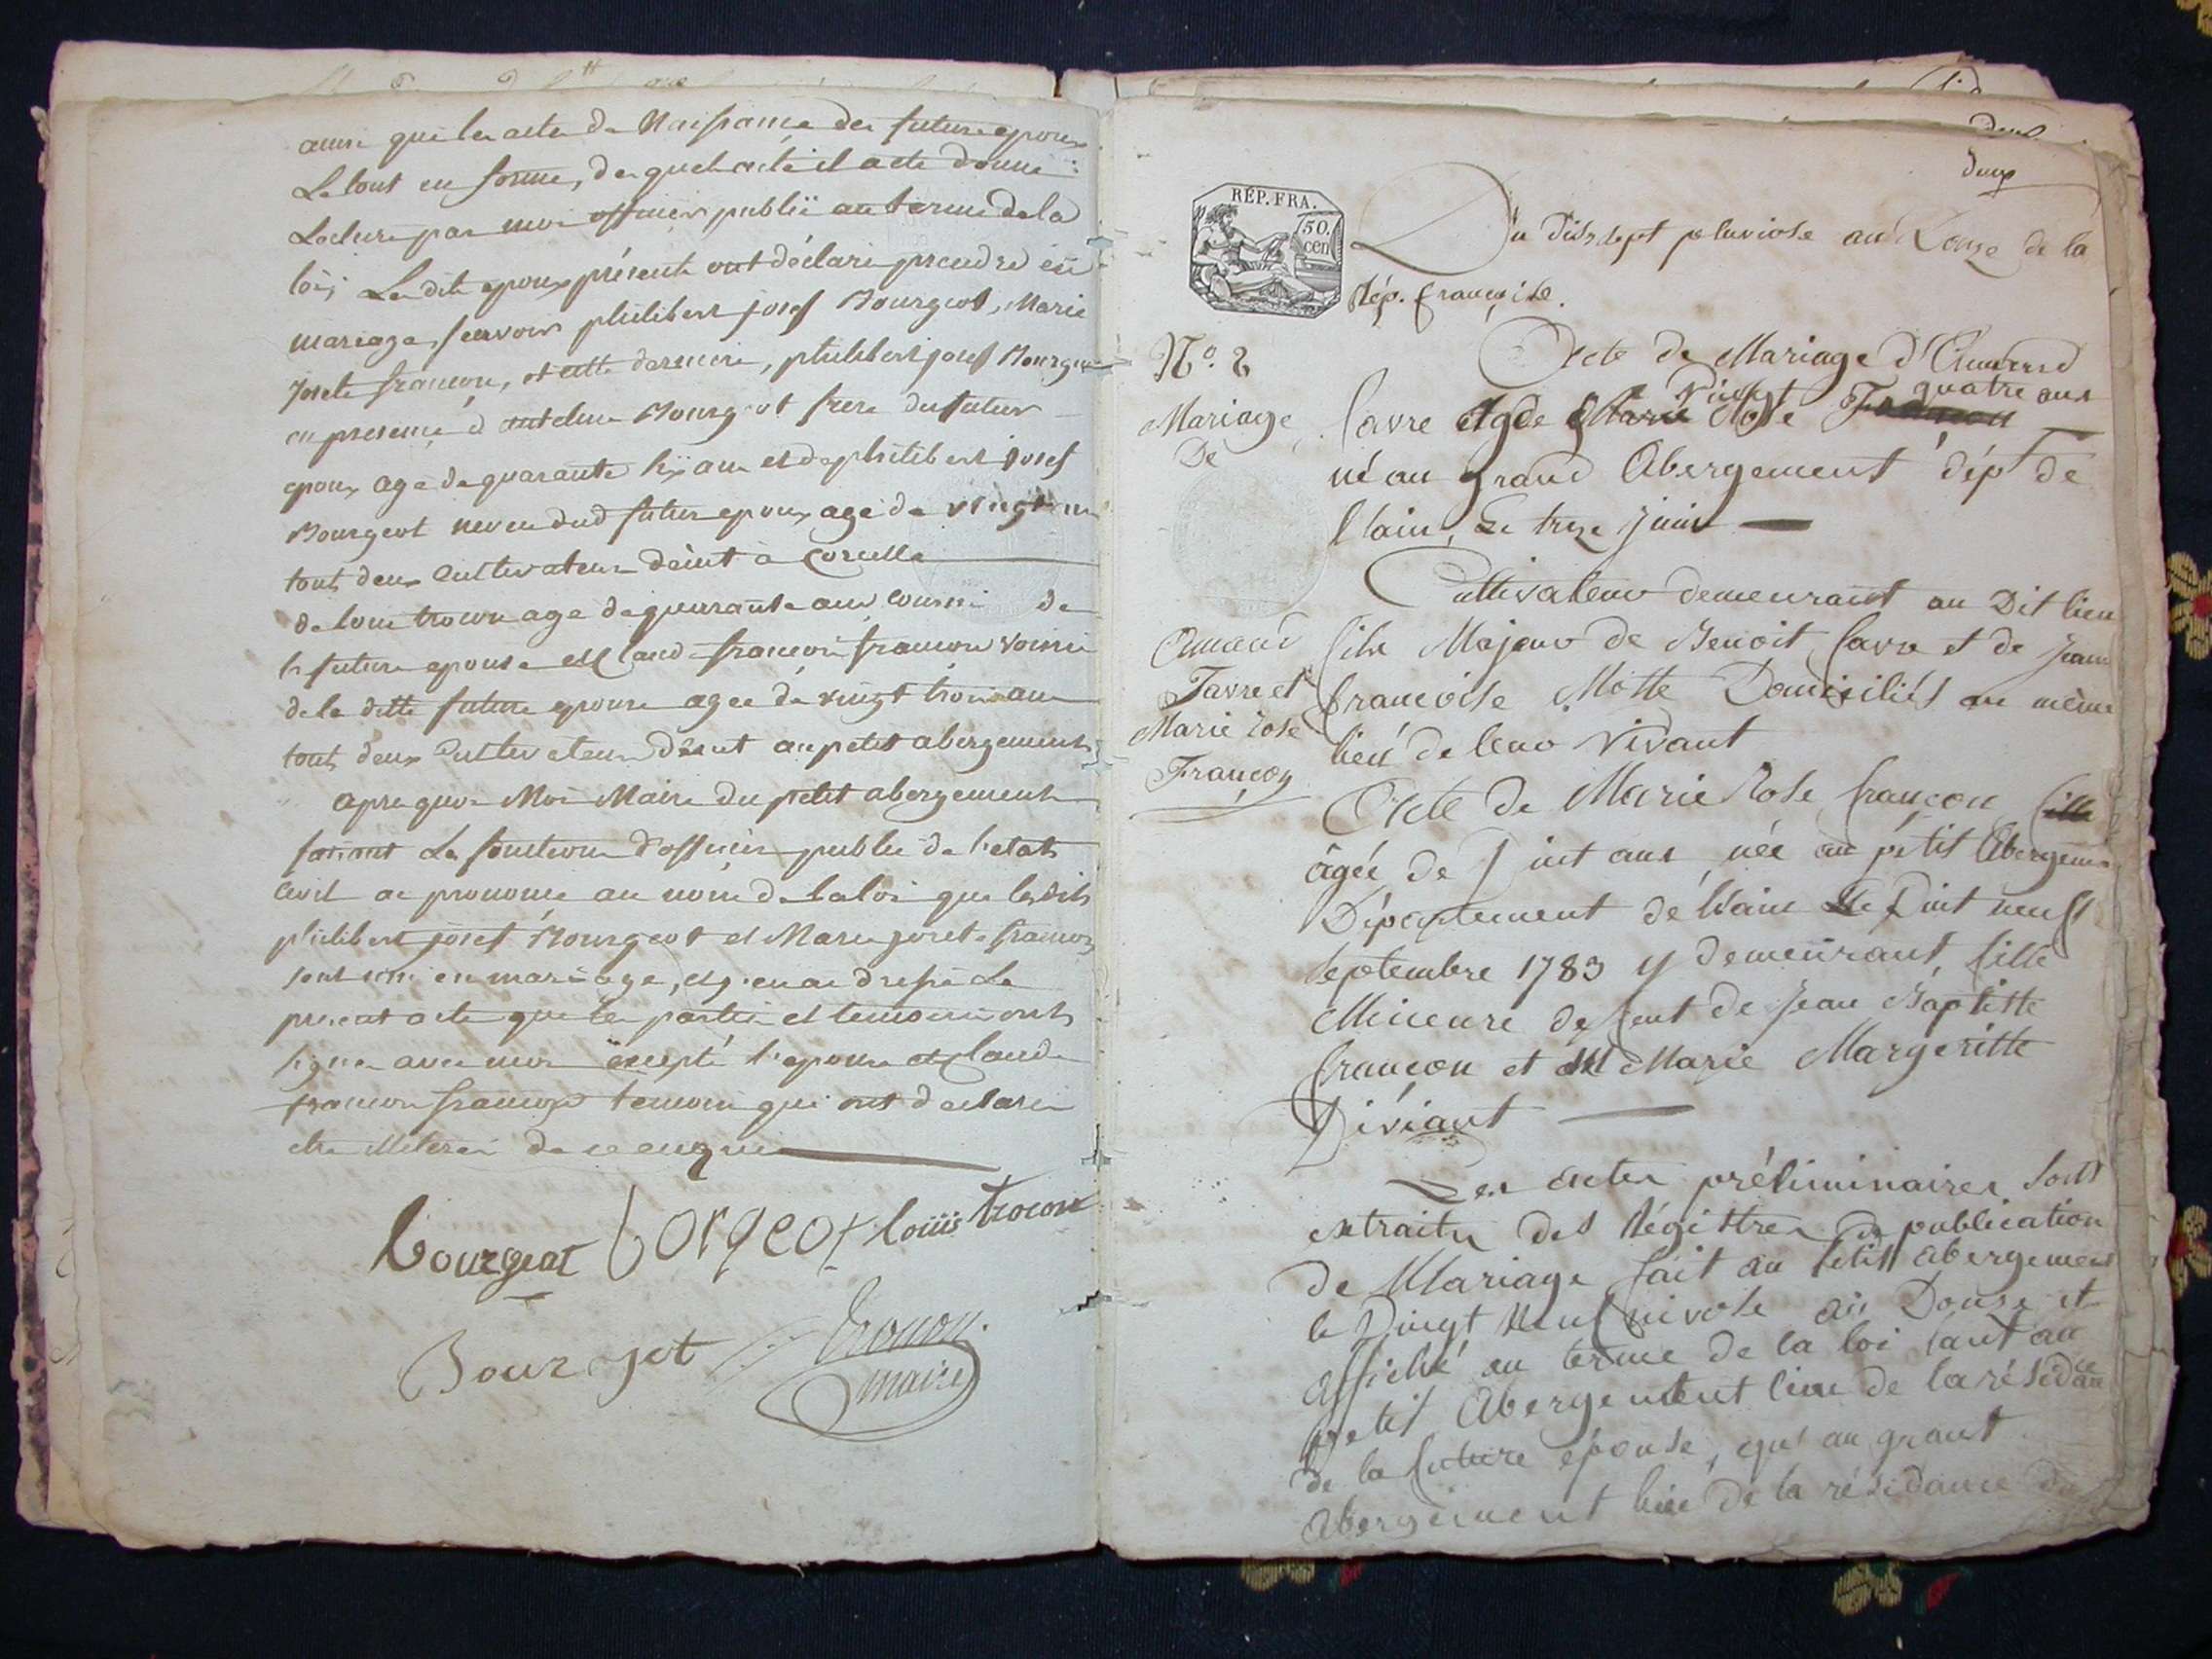 ainsi que les actes de Naissance des futurs epoux
Le tout en forme, desquels acte il a ete donné
Lecture par moi officier publiï au terme de la
loi; Lesdits epoux présents ont déclaré prendre en
mariage, savoir philibert josef Bourgeot, Marie
Josete françon, et cette derniere, philibert josef Bourgeot
en presence d'antelme Bourgeot frere du futur
epoux agé de quarante six ans et de philibert josef
Bourgeot neveu dud futur epoux agé de vingt
tout deux Cultivateur à Corcelle
de Louis trocon agé de quarante ans cousin de
la future epouse et Claude françois françon voisin
de la ditte future epouse agee de vingt trois ans
tout deux Cultivateur au petit abergement
apres quoi Moi Maire du petit abergement
faisant La fonction d'officier public de l'etat
Civil ai prononcé au nom de la loi que lesdits
philibert josef Bourgeot et Marie josete françon
sont uni en mariage, et j'en ai dressé Le
present acte que les parties et temoins ont
signer avec moi excepté l'epouse et Claude
françon temoin qui ont declarer
etre illeteré de ce enquis
bourgeot borgeot louiis trocon
Bourgot trocon
maire
deux
RÉP. FRA.
50.
cen
Du dix sept pluviose an Douze de la
Rép. française.
N.º 2
Mariage
De
Armand
Favre et
Marie rose
Françon
Acte de Mariage d'Armand
favre Agée Vingt quatre ans
né au grand Abergement dép.t de
l'lain, Le treze juin
Cultivateur demeurant au Dit lieu
fils Majeur de Benoit favre et de Jeanne
françoise Motte Domiciliés au même
lieu de leur vivant
Acte de Marie Rose françon fille
âgée de Vint ans née au pétit Abergement
Département de l'ain Le Vint neuf
Septembre 1783 y demeurant, fille
Mineure de feut de Jean Baptiste
françon et Marie Margeritte
Diviant
Les actes préliminaires sont
extraits des Régistres de publication
de Mariage fait au Petit abergement
le Vingt Neuf nivose an Douze et
Affiché au terme de la loi tant au
petit Abergement lieu de la résidance
de la future épouse, que au grant
Abergement lieu de la résidance du